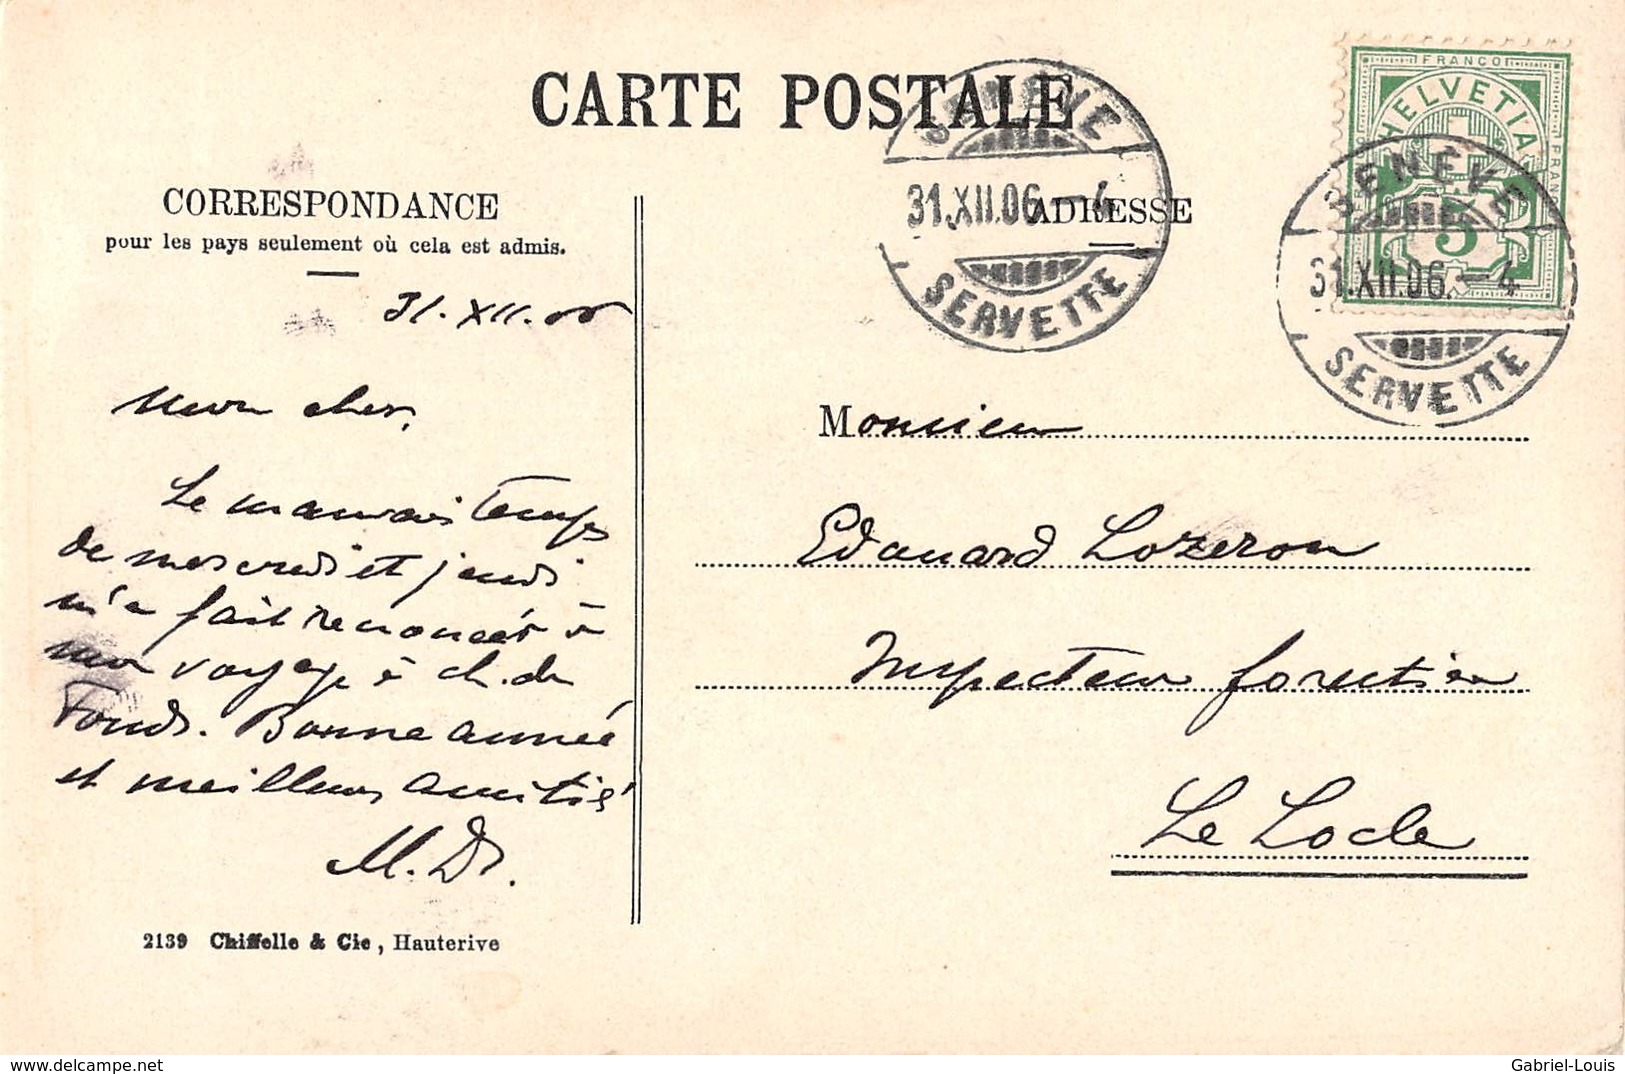 CARTE POSTALE
CORRESPONDANCE
pour les pays seulement où cela est admis.
ADRESSE
GENÈVE
31.XII.06.–4
SERVETTE
FRANCO
HELVETIA
FRANCO
5
GENÈVE
31.XII.06.–4
SERVETTE
31. XII. 06
Mon cher,
Le mauvais temps
de mercredi et jeudi
m'a fait renoncer à
mon voyage à Ch. de
Fonds. Bonne année
et meilleures amitiés
M. Ds.
Monsieur
Edouard Lozeron
Inspecteur forestier
Le Locle
2139 Chiffelle & Cie, Hauterive
www.delcampe.net
Gabriel-Louis